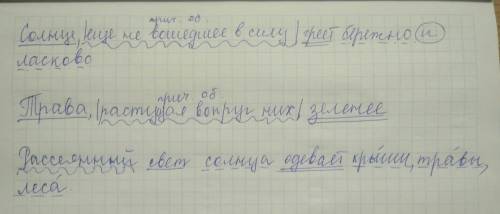 прич. об.
Солнце, |еще не вошедшее в силу| греет бережно и
ласково
прич об
Трава, |растущая вокруг них| зеленее
Рассеянный свет солнца одевает кры́ши, тра́вы,
леса́.